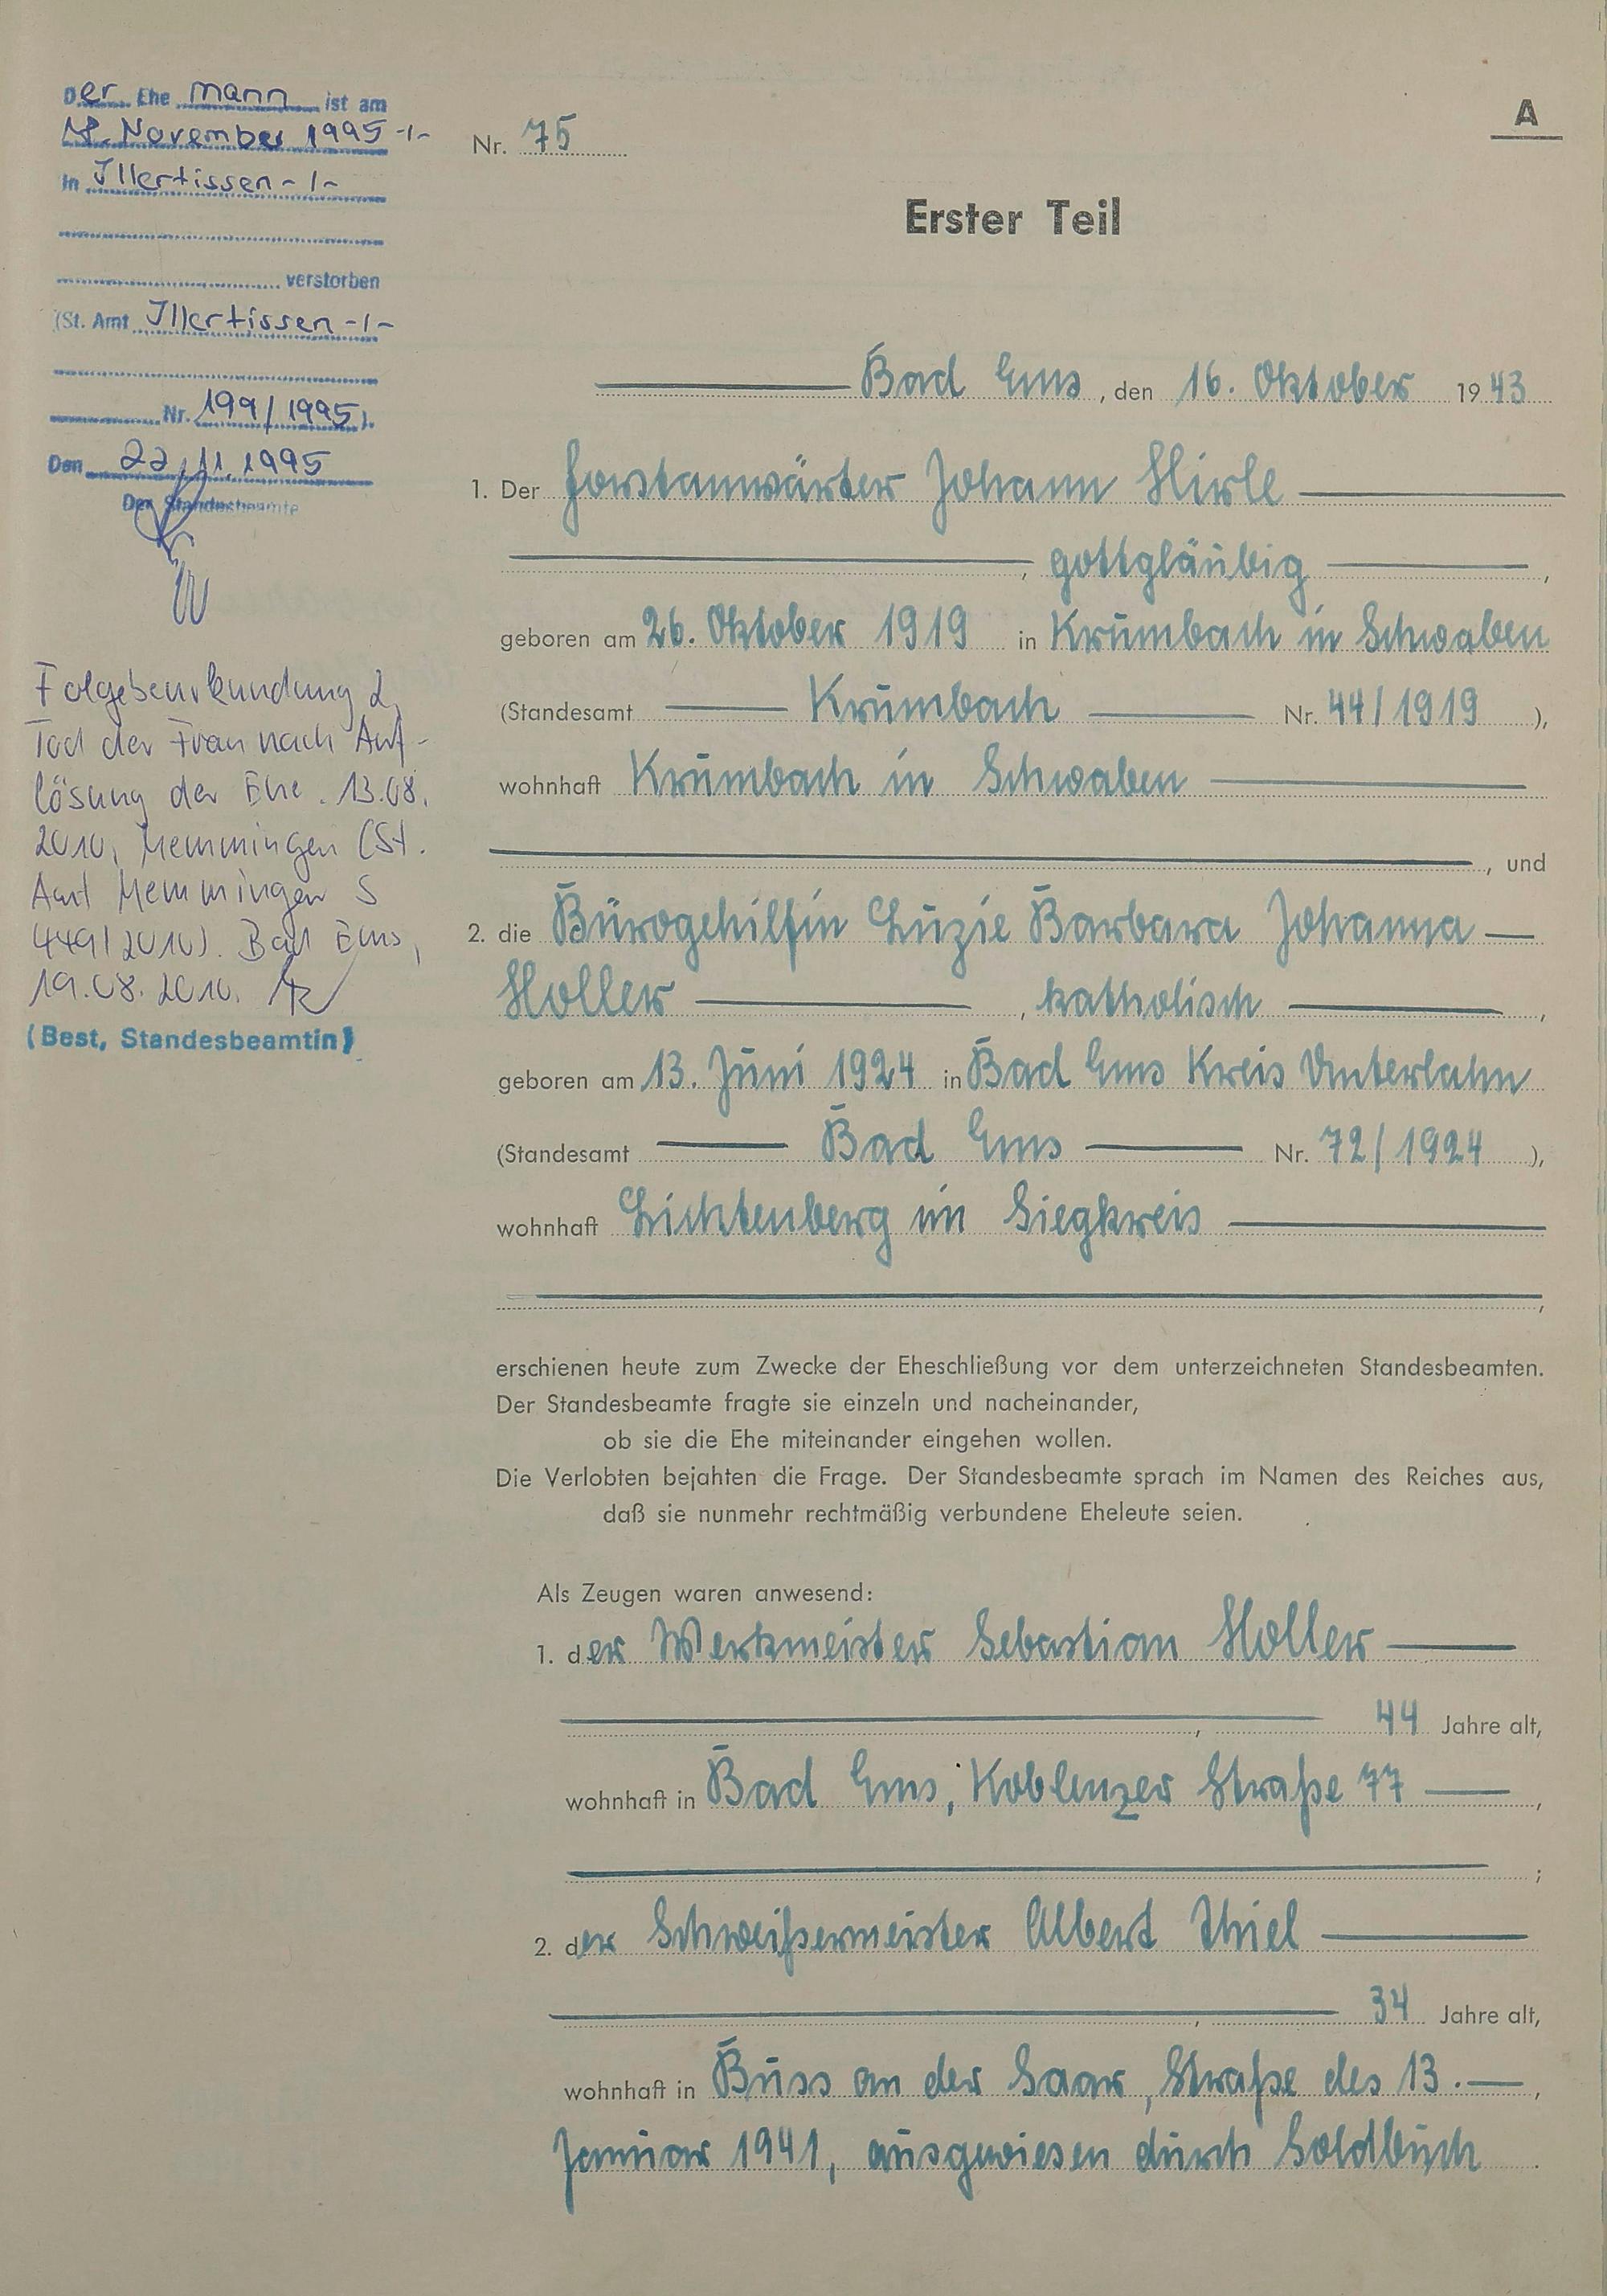 Der Ehe mann ist am
18. November 1995 -/-
in Illertissen -/-
verstorben
(St. Amt Illertissen -/-
Nr. 199/1995).
Den 22.11.1995
Der Standesbeamte
Folgebeurkundung 2,
Tod der Frau nach Auf-
lösung der Ehe. 13.08.
2010, Memmingen (St.
Amt Memmingen S
449/2010). Bad Ems,
19.08.2010.
(Best, Standesbeamtin)
A
Nr. 75
Erster Teil
Bad Ems, den 16. Oktober 1943
1. Der Forstanwärter Johann Hirle
, gottgläubig ,
geboren am 26. Oktober 1919 in Krumbach in Schwaben
(Standesamt Krumbach Nr. 44/1919 ),
wohnhaft Krumbach in Schwaben
, und
2. die Bürogehilfin Luzie Barbara Johanna
Holler , katholisch ,
geboren am 13. Juni 1924 in Bad Ems Kreis Unterlahn
(Standesamt Bad Ems Nr. 72/1924 ),
wohnhaft Lichtenberg im Siegkreis
,
erschienen heute zum Zwecke der Eheschließung vor dem unterzeichneten Standesbeamten.
Der Standesbeamte fragte sie einzeln und nacheinander,
ob sie die Ehe miteinander eingehen wollen.
Die Verlobten bejahten die Frage. Der Standesbeamte sprach im Namen des Reiches aus,
daß sie nunmehr rechtmäßig verbundene Eheleute seien.
Als Zeugen waren anwesend:
1. der Werkmeister Sebastian Holler
, 44 Jahre alt,
wohnhaft in Bad Ems, Koblenzer Straße 77 ,
;
2. der Schweißermeister Albert Thiel
, 34 Jahre alt,
wohnhaft in Buss an der Saar, Straße des 13. ,
Januar 1941, ausgewiesen durch Soldbuch .